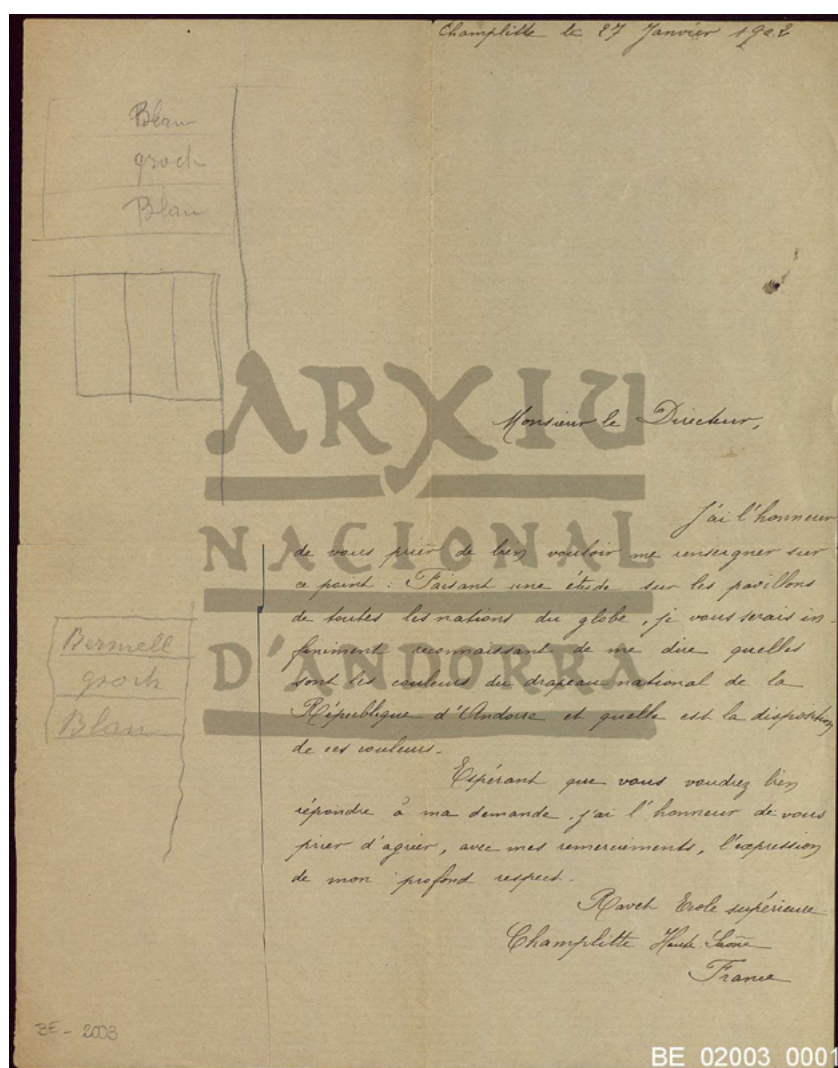 Champlitte le 27 Janvier 1902
Blau
groch
Blau
Monsieur le Directeur,
J'ai l'honneur
de vous prier de bien vouloir me renseigner sur
ce point : Faisant une étude sur les pavillons
de toutes les nations du globe, je vous serais in-
finiment reconnaissant de me dire quelles
sont les couleurs du drapeau national de la
République d'Andorre et quelle est la disposition
de ces couleurs.
Espérant que vous voudrez bien
répondre à ma demande, j'ai l'honneur de vous
prier d'agréer, avec mes remerciements, l'expression
de mon profond respect.
Ravet Ecole supérieure
Champlitte Haute-Saône
France
Bermell
groch
Blau
BE - 2003
ARXIU
NACIONAL
D'ANDORRA
BE_02003_0001